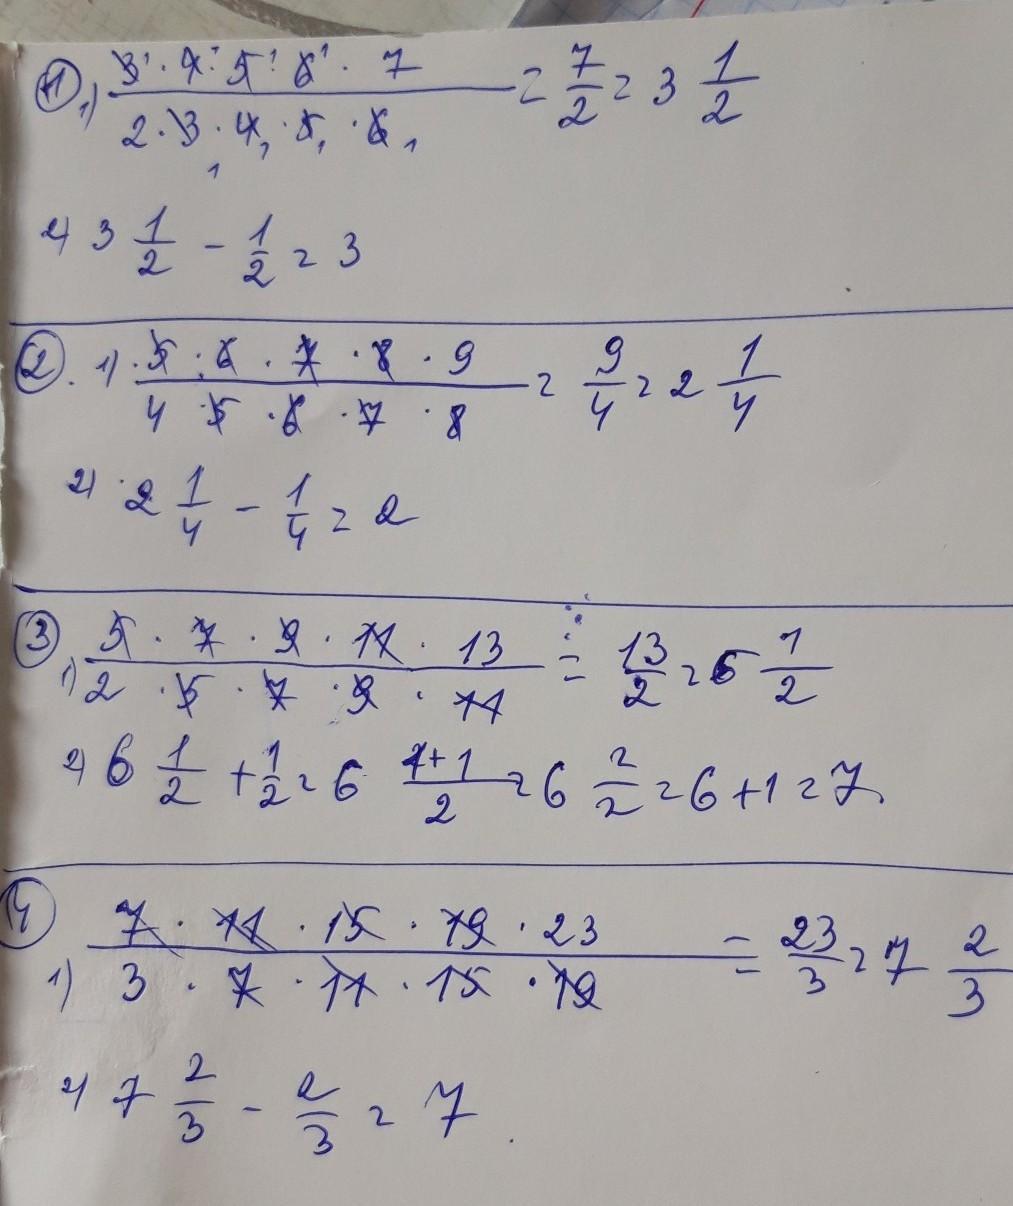 ① 1) 3¹ · 4¹ · 5¹ · 6¹ · 7 / 2 · 3₁ · 4₁ · 5₁ · 6₁ = 7/2 = 3 1/2
2) 3 1/2 - 1/2 = 3
②. 1) 5 · 6 · 7 · 8 · 9 / 4 · 5 · 6 · 7 · 8 = 9/4 = 2 1/4
2) 2 1/4 - 1/4 = 2
③ 1) 5 · 7 · 9 · 11 · 13 / 2 · 5 · 7 · 9 · 11 = 13/2 = 6 1/2
2) 6 1/2 + 1/2 = 6 1+1/2 = 6 2/2 = 6 + 1 = 7
④ 1) 7 · 11 · 15 · 19 · 23 / 3 · 7 · 11 · 15 · 19 = 23/3 = 7 2/3
2) 7 2/3 - 2/3 = 7